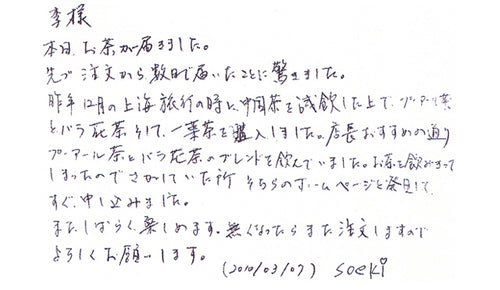 李様
本日、お茶が届きました。
先ず注文から数日で届いたことに驚きました。
昨年12月の上海旅行の時に、中国茶を試飲した上で、プーアール茶
とバラ花茶そして、一葉茶を購入しました。店長おすすめの通り
プーアール茶とバラ花茶のブレンドを飲んでいました。お茶を飲みきって
しまったのでさがしていた所 そちらのホームページを発見して、
すぐ申し込みました。
またしばらく楽しめます。無くなったらまた注文しますので
よろしくお願いします。
(2010/03/07) soeki